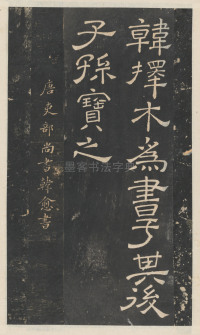 韓擇木為書予其後
子孫寶之
唐吏部尚書韓愈書
墨客书法字典